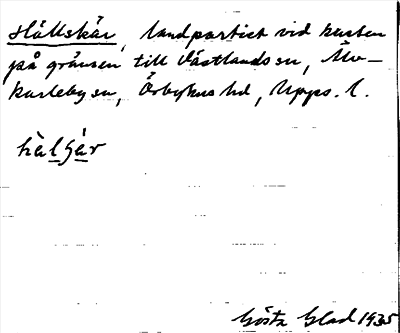 Hällskär, landpartiet vid kusten
på gränsen till Västlands sn, Älv-
karleby sn, Örbyhus hd, Upps. l.
hälʃär
Gösta Glad 1935